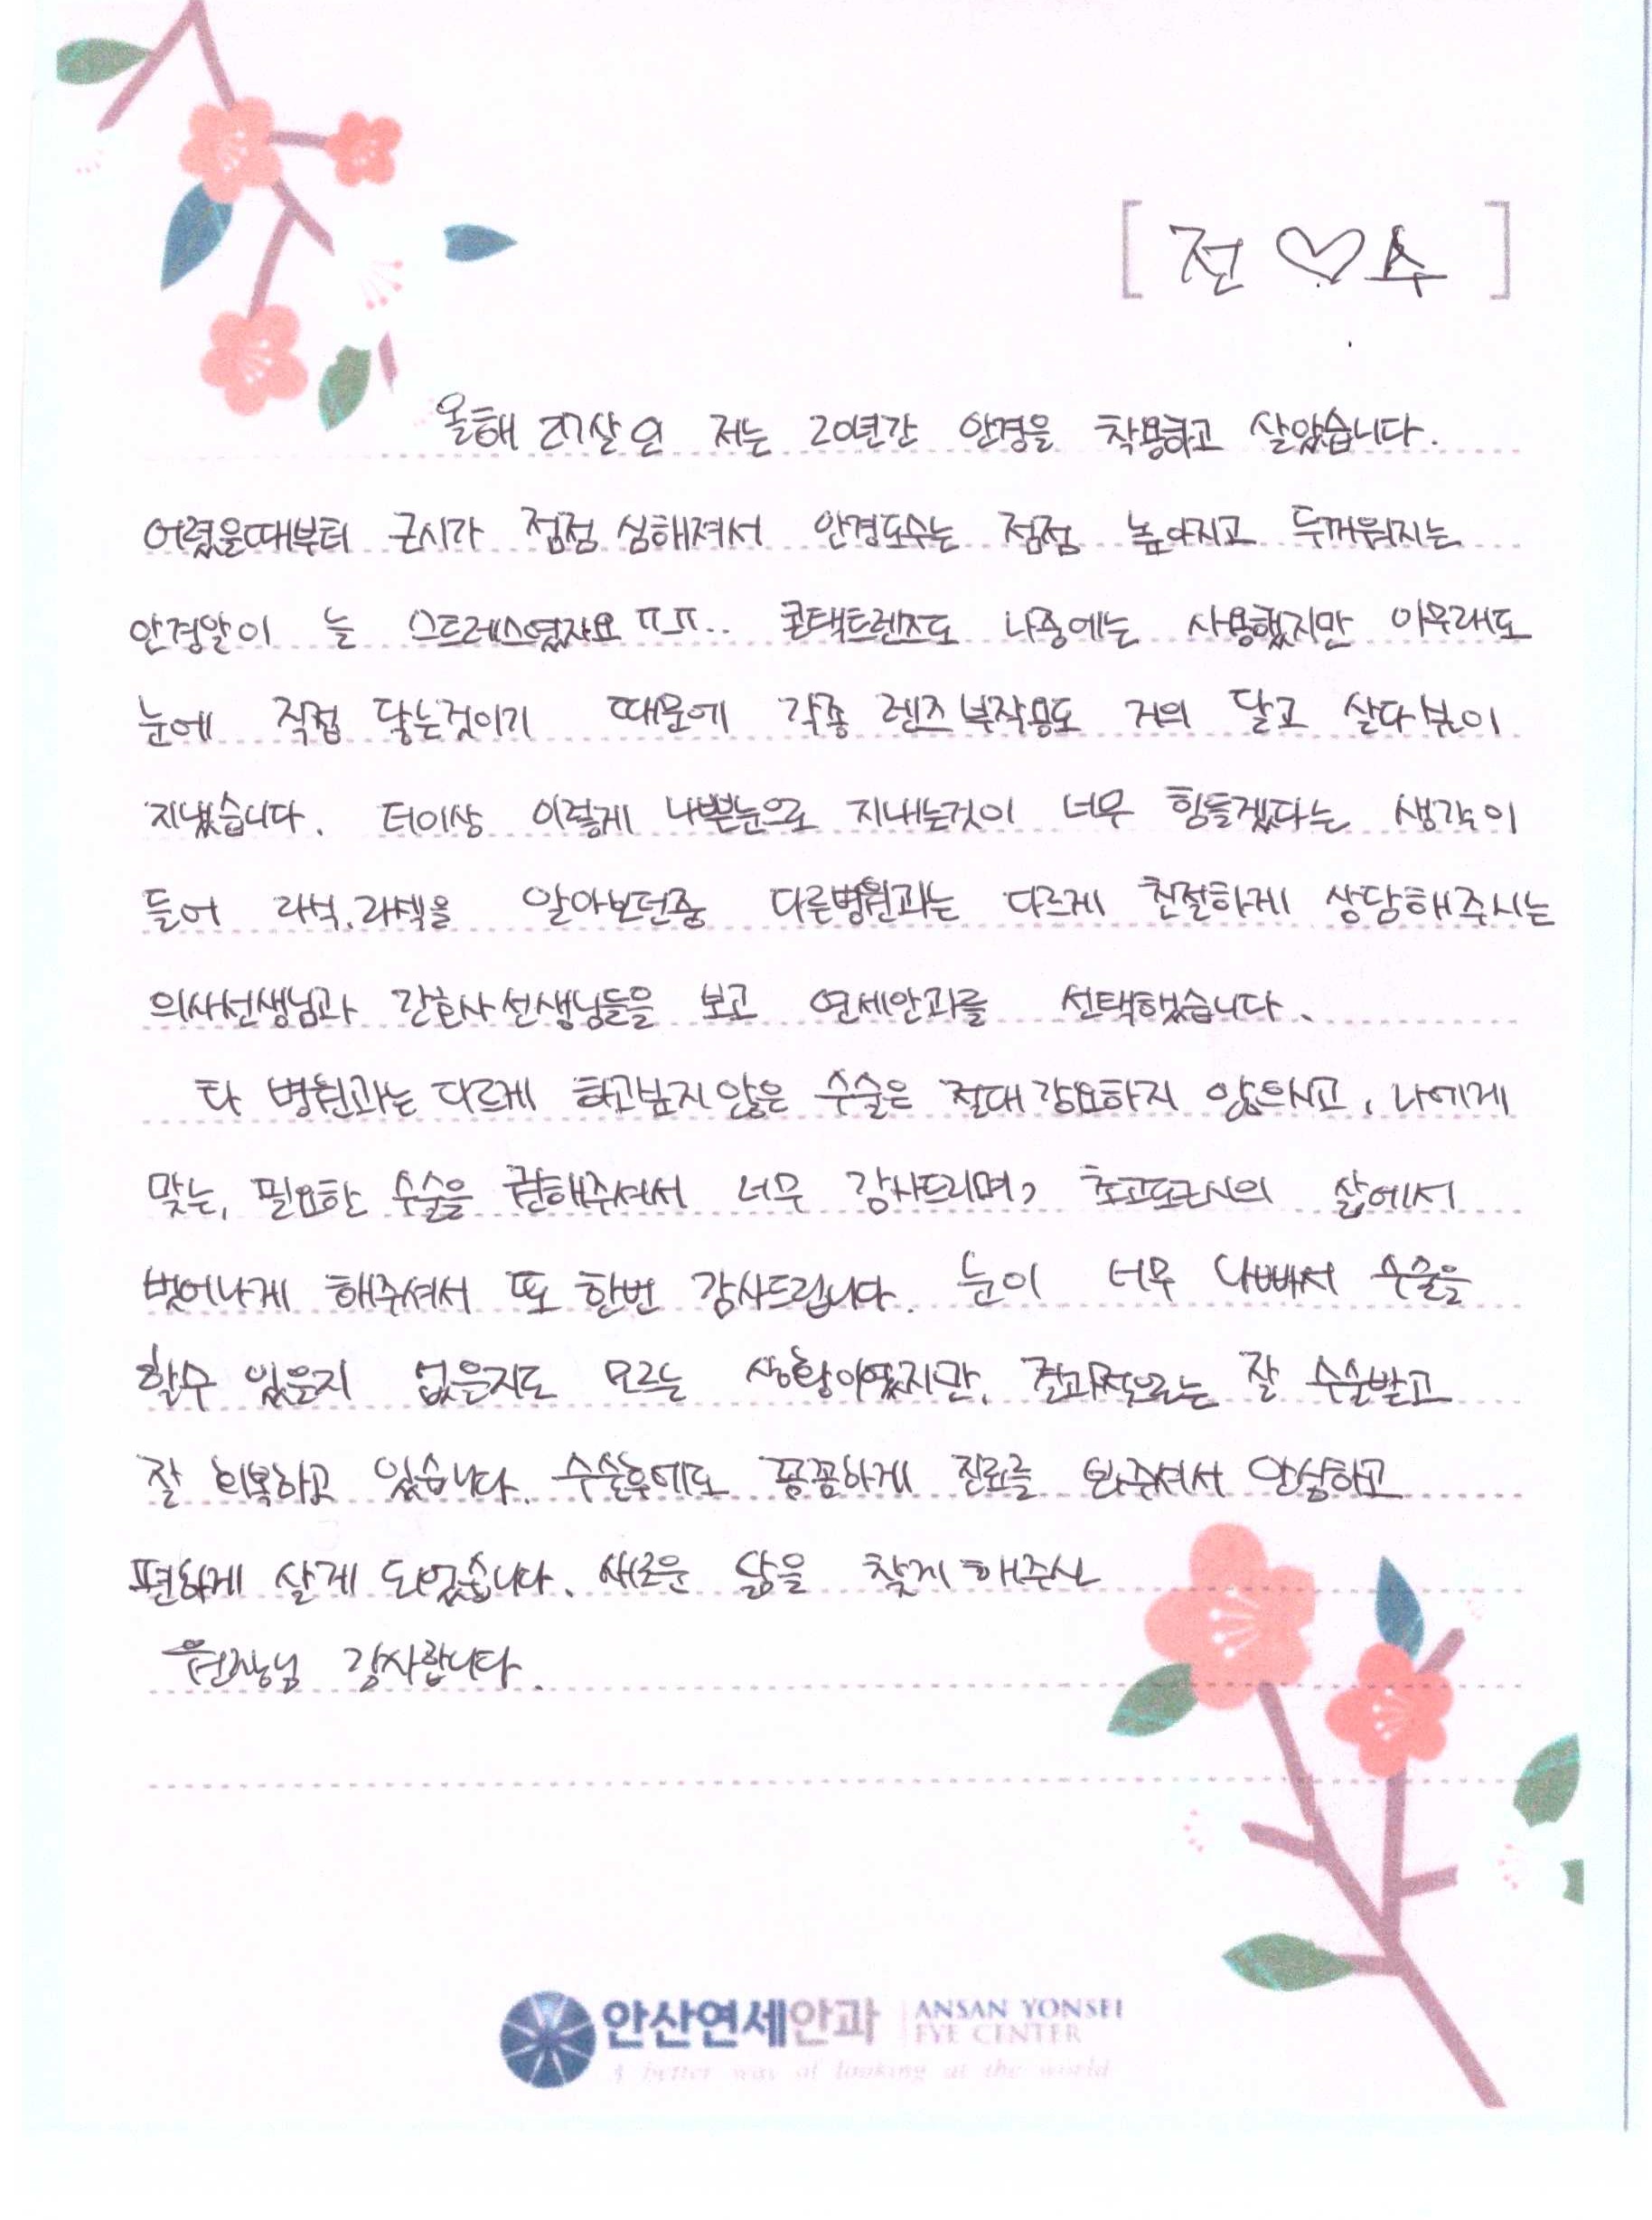 [ 전 ♡ 수 ]
올해 27살인 저는 20년간 안경을 착용하고 살았습니다.
어렸을때부터 근시가 점점 심해져서 안경도수는 점점 높아지고 두꺼워지는
안경알이 늘 스트레스였자요 ㅠㅠ.. 콘택트렌즈도 나중에는 사용했지만 아무래도
눈에 직접 닿는것이기 때문에 각종 렌즈부작용도 거의 달고 살다싶이
지냈습니다. 더이상 이렇게 나쁜눈으로 지내는것이 너무 힘들겠다는 생각이
들어 라식.라섹을 알아보던중 다른병원과는 다르게 친절하게 상담해주시는
의사선생님과 간호사선생님들을 보고 연세안과를 선택했습니다.
타 병원과는 다르게 하고싶지않은 수술은 절대강요하지 않으시고, 나에게
맞는, 필요한 수술을 권해주셔서 너무 감사드리며, 초고도근시의 삶에서
벗어나게 해주셔서 또 한번 감사드립니다. 눈이 너무 나빠서 수술을
할수 있을지 없을지도 모르는 상황이였지만, 결과적으로는 잘 수술받고
잘 회복하고 있습니다. 수술후에도 꼼꼼하게 진료를 봐주셔서 안심하고
편하게 살게 되었습니다. 새로운 삶을 찾게해주신
원장님 감사합니다.
안산연세안과 ANSAN YONSEI
EYE CENTER
A better way of looking at the world